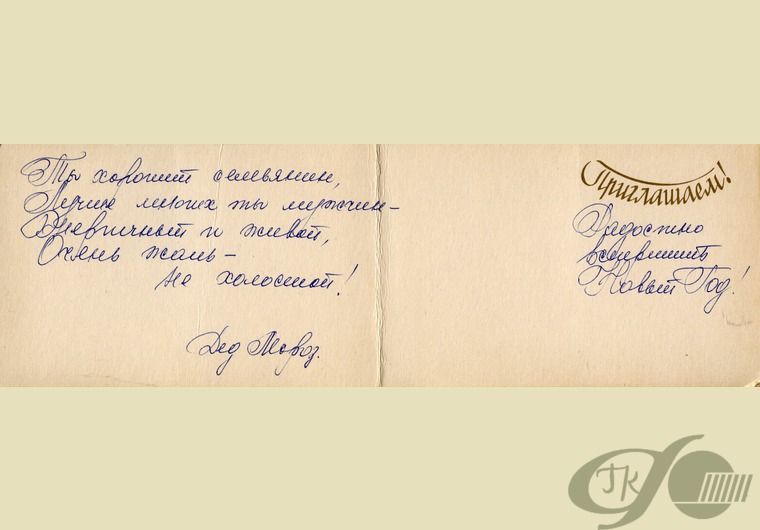 Ты хороший семьянин,
Лучше многих ты мужчин –
Энергичный и живой,
Очень жаль –
не холостой!
Дед Мороз.
Приглашаем!
Радостно
встретить
Новый Год!
ГК